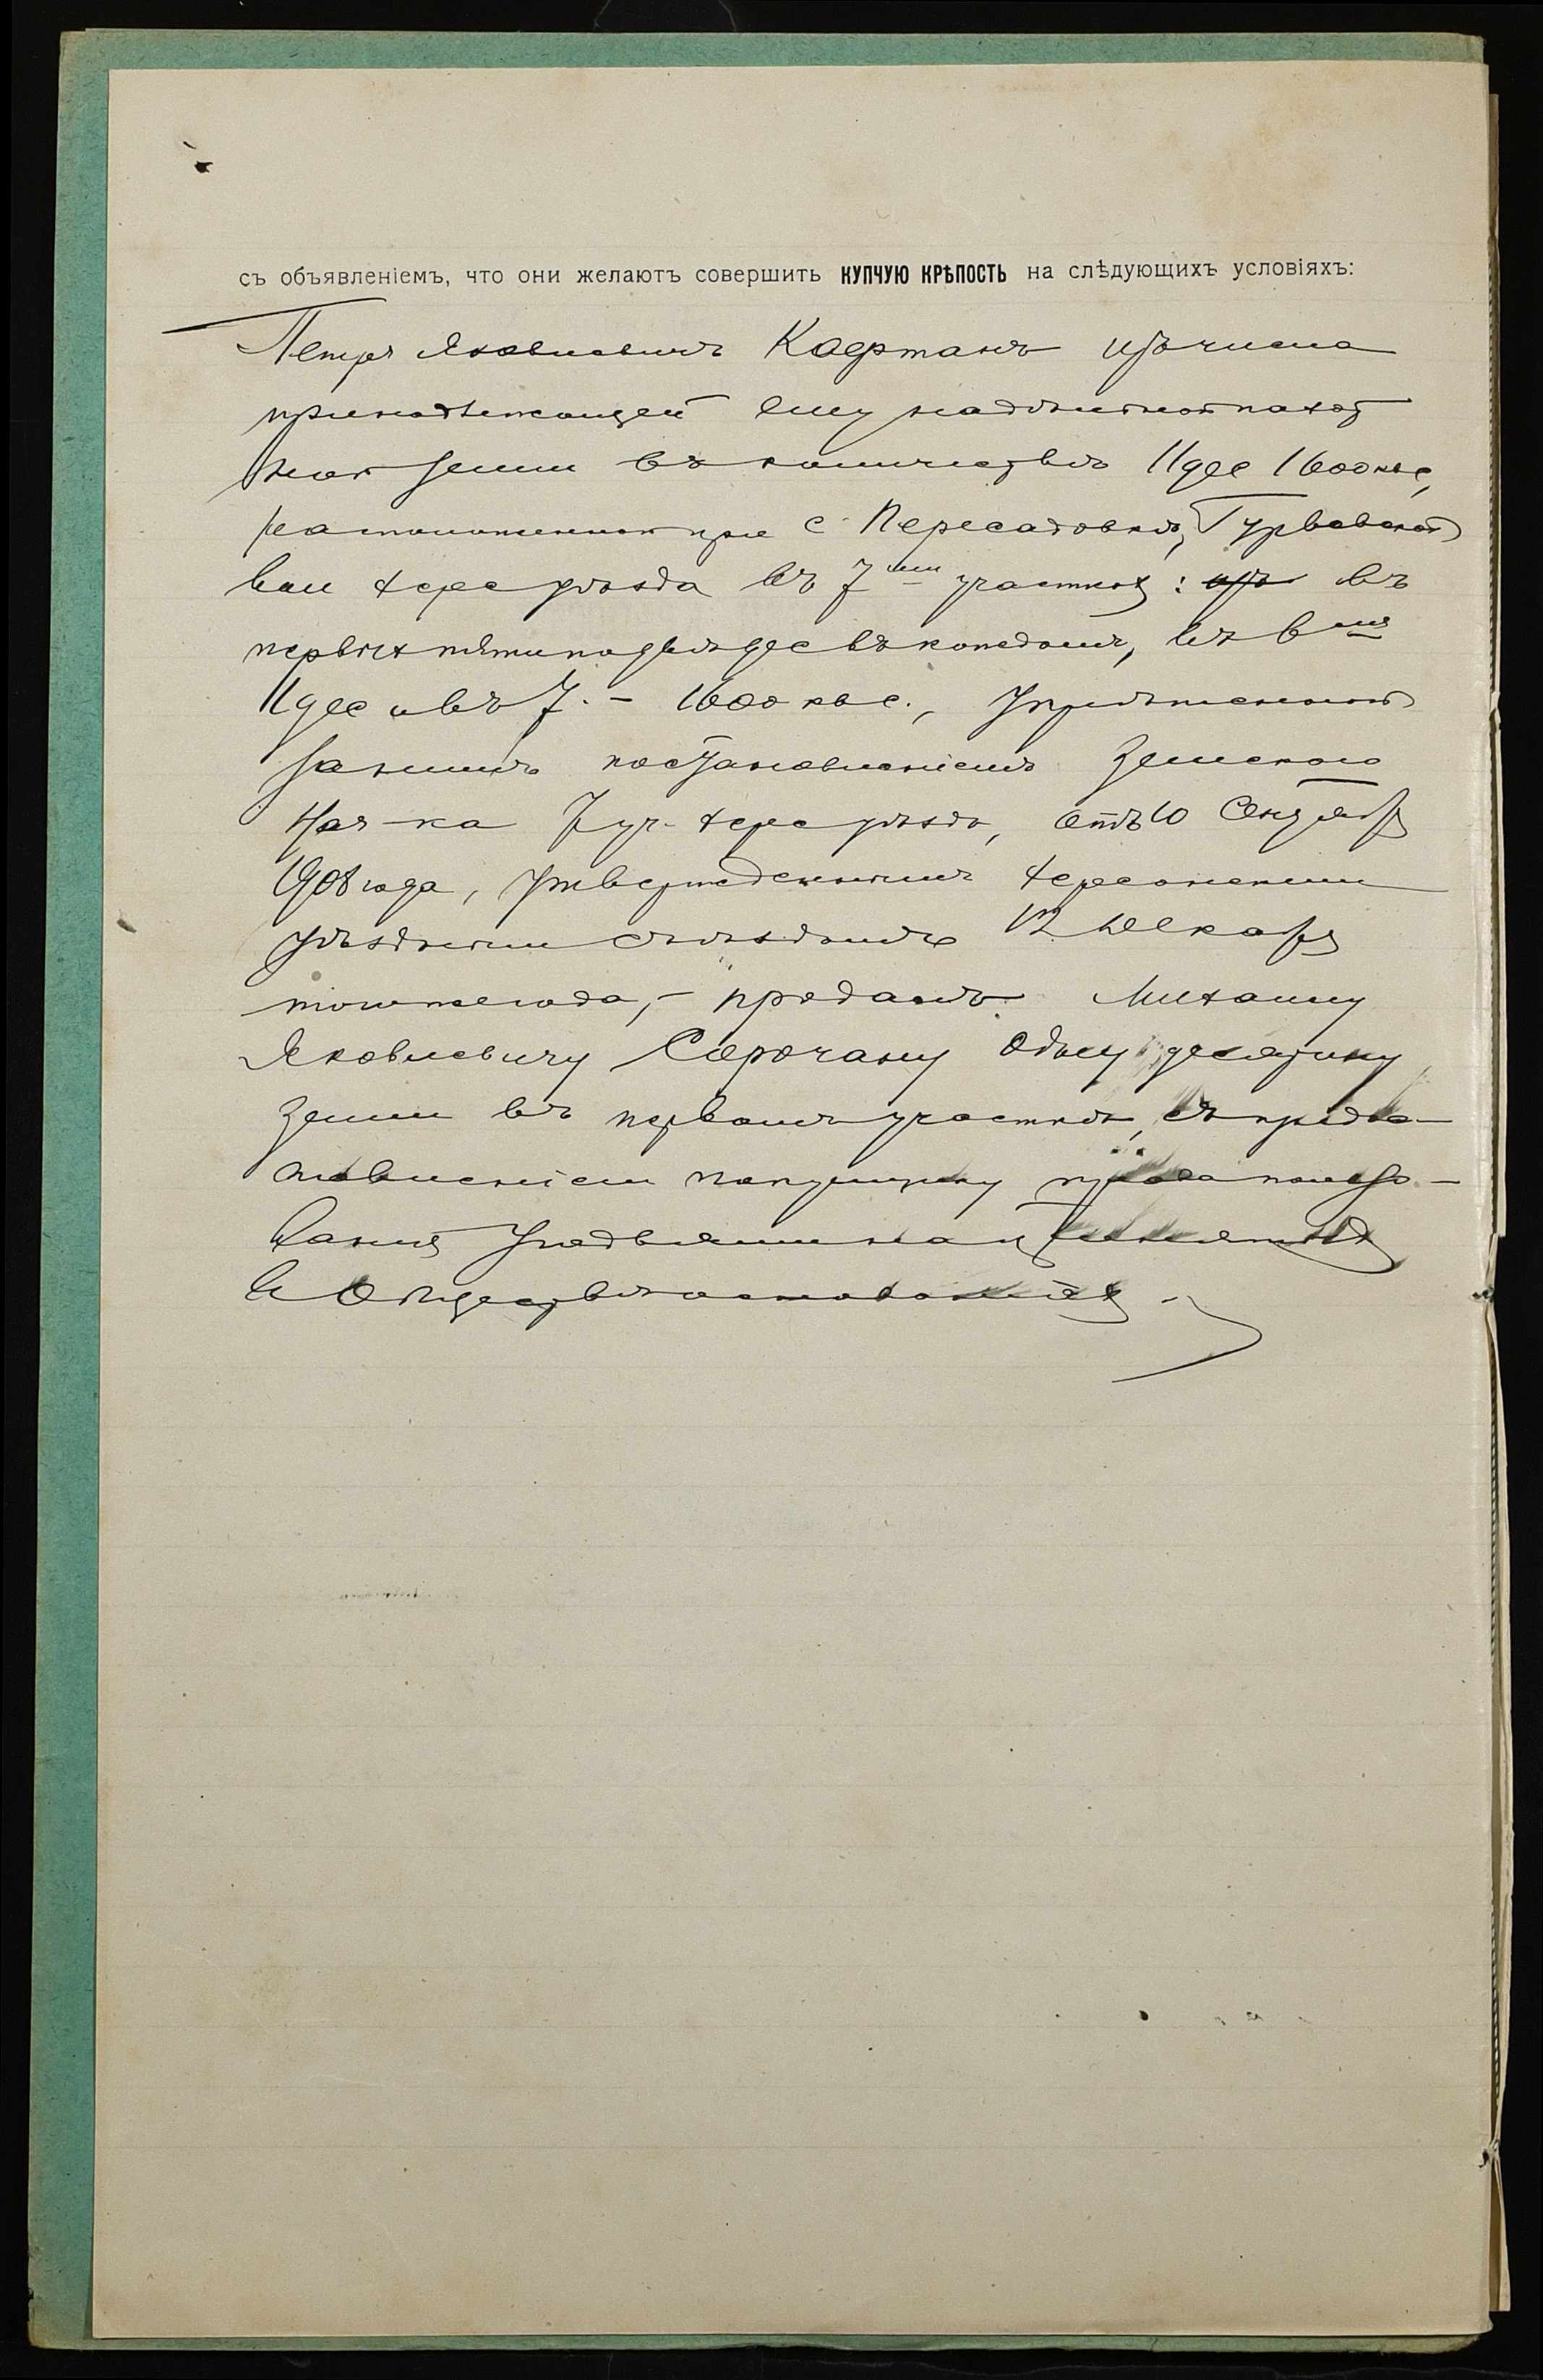 съ объявленіемъ, что они желаютъ совершить КУПЧУЮ КРѢПОСТЬ на слѣдующихъ условіяхъ:
Петръ Яковлевичъ Кафтанъ изъ числа
принадлежащей ему надѣльной пахот
ной земли въ количествѣ 11 дес 1600 кв с,
расположенной при с. Пересадовкѣ,
вол Херс уѣзда въ 7ми участкахъ: въ
первыхъ пяти по двѣ дес въ каждомъ, въ
дес и въ 7. – 1600 кв с., укрѣпленной
за нимъ постановленіемъ Земскаго
Нач-ка 7 уч. Херс уѣзда, отъ 10 Сентября
1908 года, утвержденнымъ Херсонскимъ
уѣзднымъ съѣздомъ 12 Декабря
того же года, – продалъ Михаилу
Яковлевичу Сорочану одну десятину
земли въ первомъ участкѣ, съ предо-
ставленіемъ покупщику права пользо-
ванія угодьями на
общества основаніяхъ.